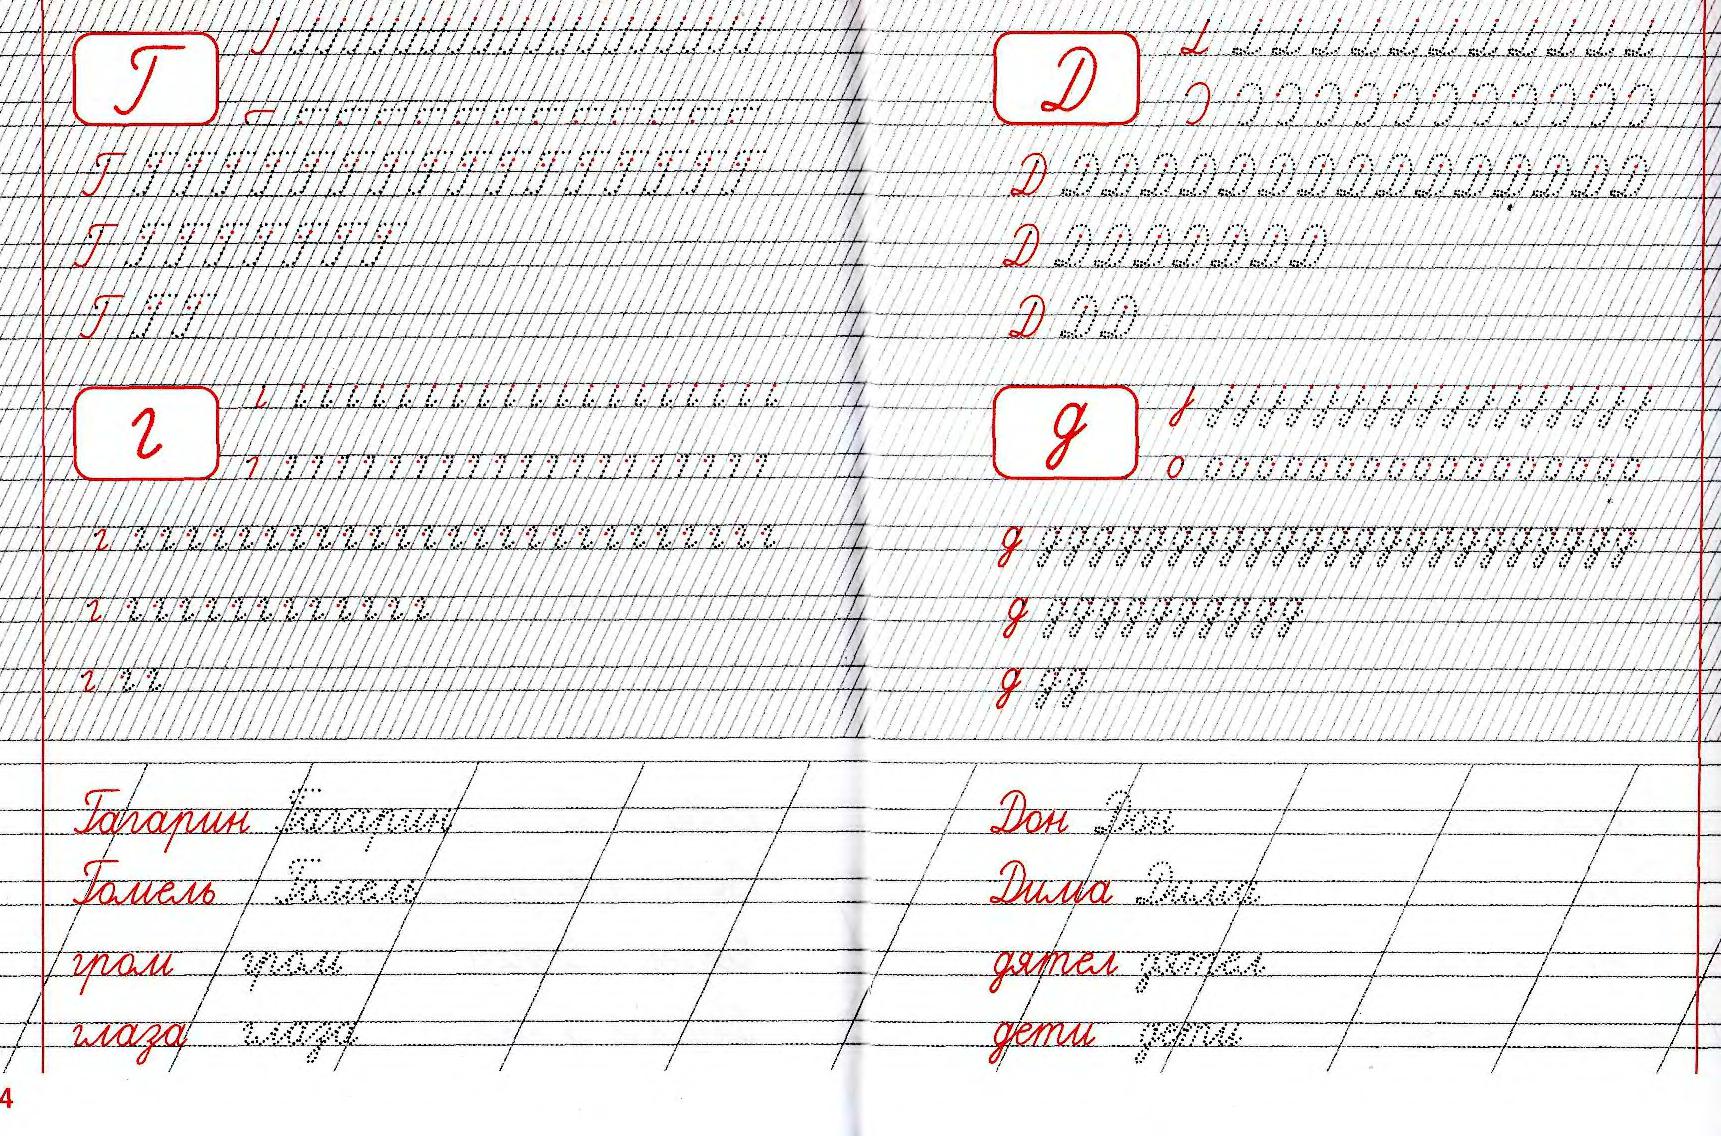 Г
Г Г Г Г Г Г Г Г Г Г Г Г Г Г Г Г Г
Г Г Г Г Г Г Г Г
Г Г Г
г
г г г г г г г г г г г г г г г г г г г г г г г г г г
г г г г г г г г г г г г г
г г г
Гагарин Гагарин
Гомель Гомель
гром гром
глаза глаза
4
Д
Д Д Д Д Д Д Д Д Д Д Д Д Д Д Д Д
Д Д Д Д Д Д Д Д
Д Д Д
д
о о о о о о о о о о о о о о о о о о
д д д д д д д д д д д д д д д д д д д д д д д д
д д д д д д д д д д д
д д д
Дон Дон
Дима Дима
дятел дятел
дети дети